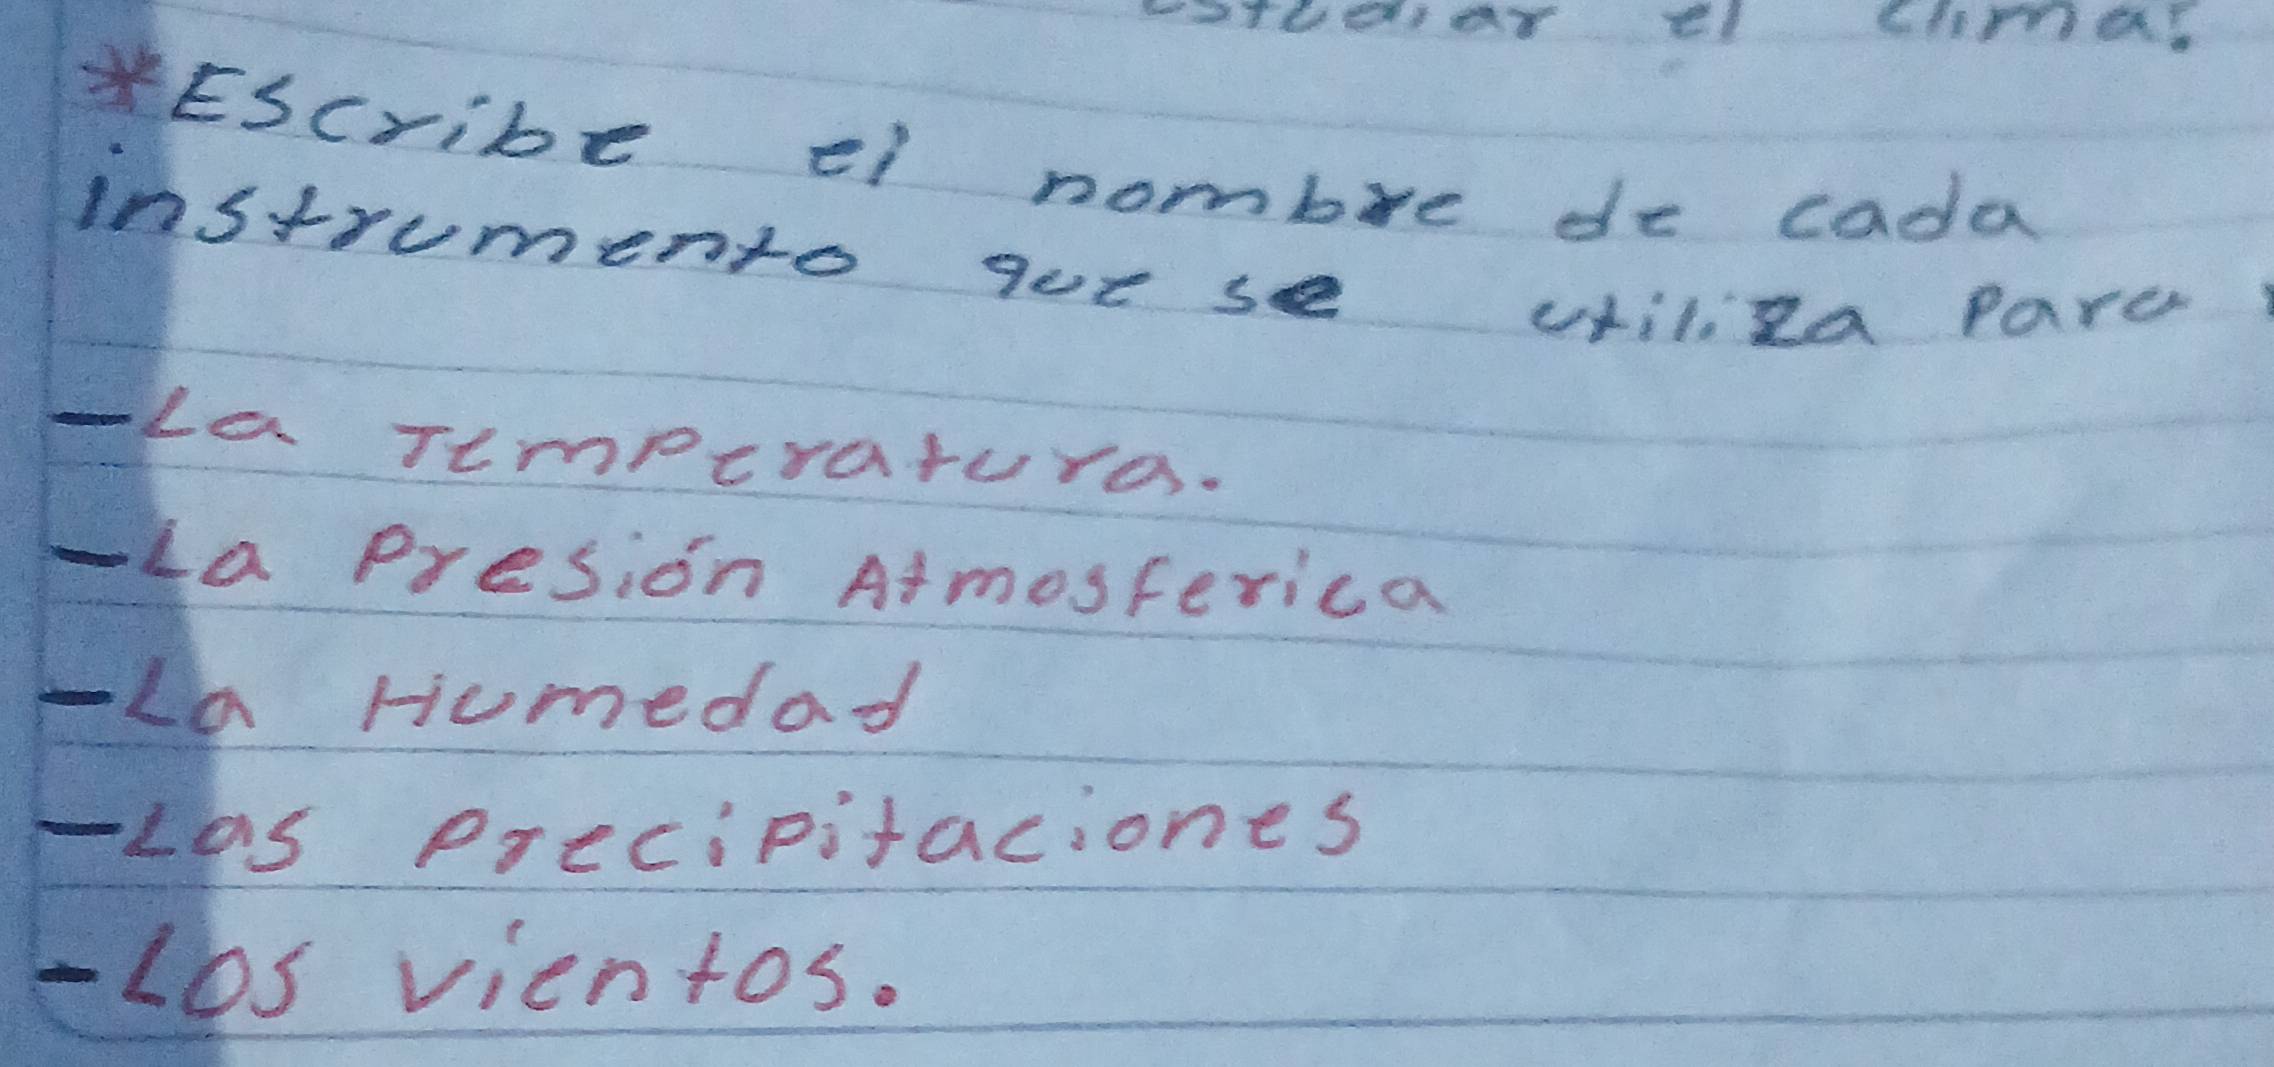 estudiar el clima?
*Escribe el nombre de cada
instrumento que se utiliza para
-La Temperatura.
-La Presión Atmosferica
-La Humedad
-Las Precipitaciones
-Los vientos.